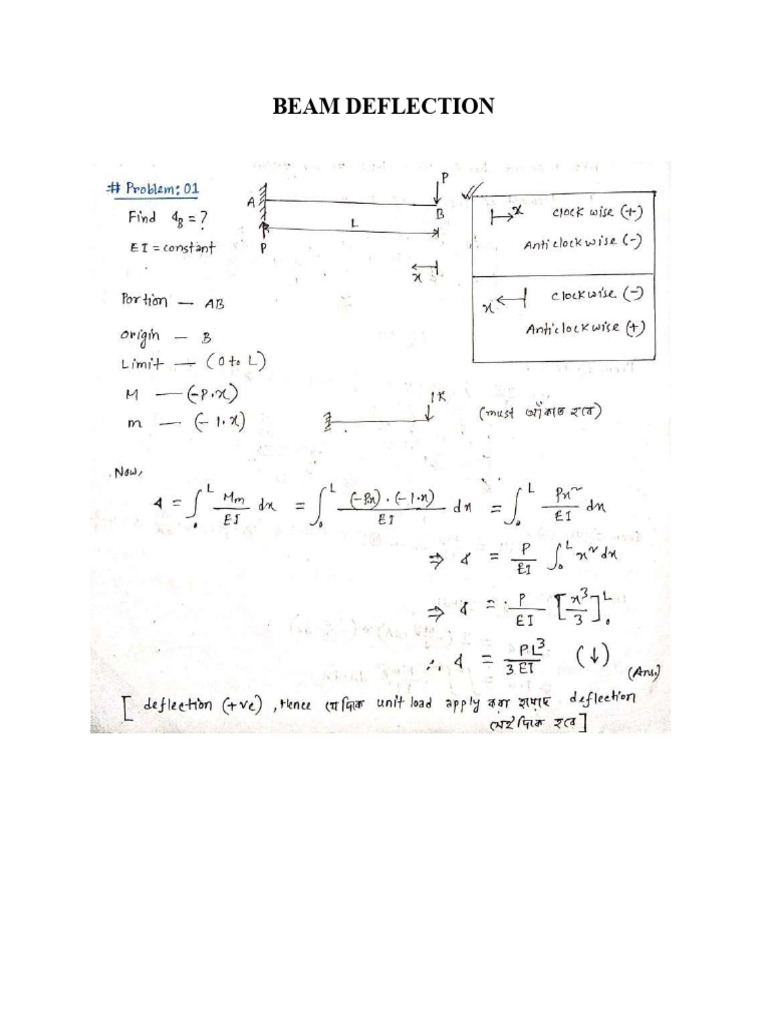 BEAM DEFLECTION
# Problem: 01
Find Δ_B = ?
EI = constant
A
P
B
L
P
x
x clock wise (+)
Anticlockwise (-)
x clockwise (-)
Anticlockwise (+)
Portion — AB
Origin — B
Limit — (0 to L)
M — (-P.x)
m — (-1.x)
1K
(must আঁকতে হবে)
Now,
Δ = ∫₀ᴸ Mm/EI dx = ∫₀ᴸ (-Px).(-1.x)/EI dx = ∫₀ᴸ Px²/EI dx
⇒ Δ = P/EI ∫₀ᴸ x² dx
⇒ Δ = P/EI [x³/3]₀ᴸ
∴ Δ = PL³/3EI (↓)
(Ans.)
[ deflection (+ve), Hence যে দিকে unit load apply করা হয়েছে deflection
সেই দিকে হবে ]